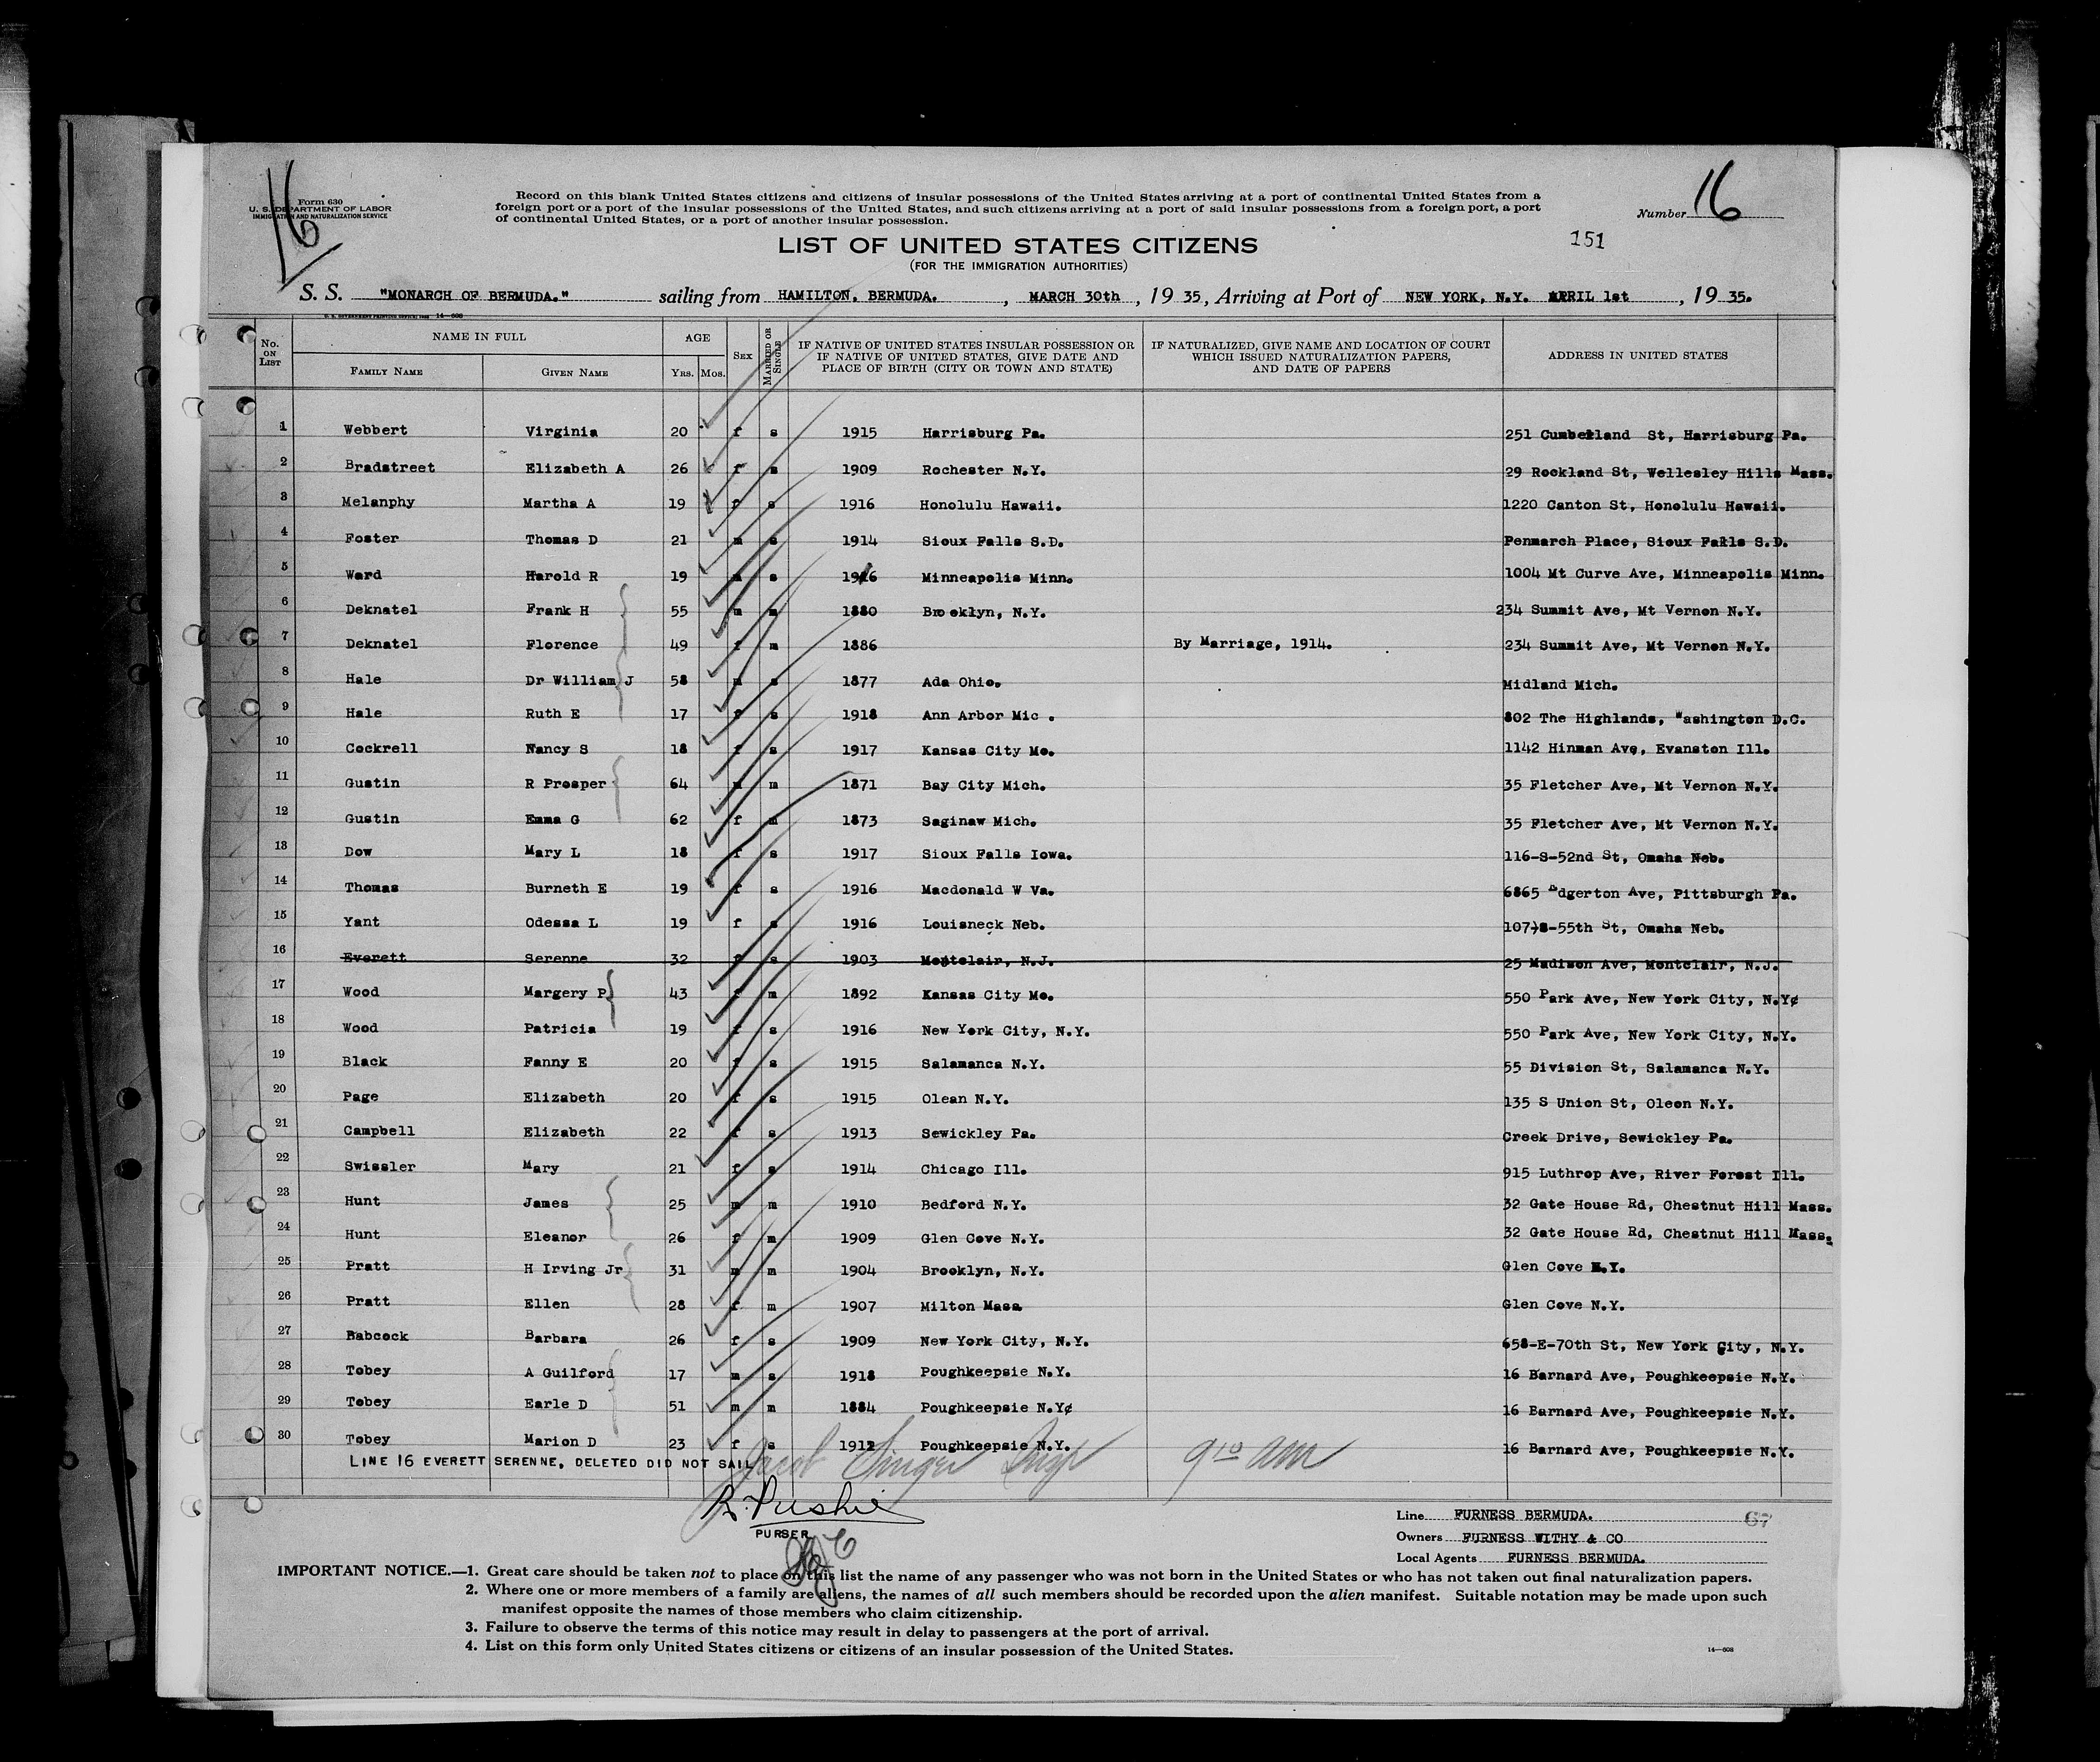 16
Form 630
U. S. DEPARTMENT OF LABOR
IMMIGRATION AND NATURALIZATION SERVICE
Record on this blank United States citizens and citizens of insular possessions of the United States arriving at a port of continental United States from a
foreign port or a port of the insular possessions of the United States, and such citizens arriving at a port of said insular possessions from a foreign port, a port
of continental United States, or a port of another insular possession.
Number 16
151
LIST OF UNITED STATES CITIZENS
(FOR THE IMMIGRATION AUTHORITIES)
S. S. "MONARCH OF BERMUDA." sailing from HAMILTON, BERMUDA. , MARCH 30th , 19 35, Arriving at Port of NEW YORK, N.Y. APRIL 1st , 19 35.
No. ON LIST NAME IN FULL FAMILY NAME GIVEN NAME AGE YRS. MOS. SEX MARRIED OR SINGLE IF NATIVE OF UNITED STATES INSULAR POSSESSION OR IF NATIVE OF UNITED STATES, GIVE DATE AND PLACE OF BIRTH (CITY OR TOWN AND STATE) IF NATURALIZED, GIVE NAME AND LOCATION OF COURT WHICH ISSUED NATURALIZATION PAPERS, AND DATE OF PAPERS ADDRESS IN UNITED STATES
1 Webbert Virginia 20 f s 1915 Harrisburg Pa. 251 Cumberland St, Harrisburg Pa.
2 Bradstreet Elizabeth A 26 f s 1909 Rochester N.Y. 29 Rockland St, Wellesley Hills Mass.
3 Melanphy Martha A 19 f s 1916 Honolulu Hawaii. 1220 Canton St, Honolulu Hawaii.
4 Foster Thomas D 21 m s 1914 Sioux Falls S.D. Penmarch Place, Sioux Falls S.D.
5 Ward Harold R 19 m s 1916 Minneapolis Minn. 1004 Mt Curve Ave, Minneapolis Minn.
6 Deknatel Frank H 55 m m 1880 Brooklyn, N.Y. 234 Summit Ave, Mt Vernon N.Y.
7 Deknatel Florence 49 f m 1886 By Marriage, 1914. 234 Summit Ave, Mt Vernon N.Y.
8 Hale Dr William J 58 m s 1877 Ada Ohio. Midland Mich.
9 Hale Ruth E 17 f s 1918 Ann Arbor Mic . 802 The Highlands, Washington D.C.
10 Cockrell Nancy S 18 f s 1917 Kansas City Mo. 1142 Hinman Ave, Evanston Ill.
11 Gustin R Prosper 64 m m 1871 Bay City Mich. 35 Fletcher Ave, Mt Vernon N.Y.
12 Gustin Emma G 62 f m 1873 Saginaw Mich. 35 Fletcher Ave, Mt Vernon N.Y.
13 Dow Mary L 18 f s 1917 Sioux Falls Iowa. 116-S-52nd St, Omaha Neb.
14 Thomas Burneth E 19 f s 1916 Macdonald W Va. 6865 Edgerton Ave, Pittsburgh Pa.
15 Yant Odessa L 19 f s 1916 Louisneck Neb. 107-S-55th St, Omaha Neb.
16 Everett Serenne 32 f s 1903 Montclair, N.J. 25 Madison Ave, Montclair, N.J.
17 Wood Margery P 43 f m 1892 Kansas City Mo. 550 Park Ave, New York City, N.Y¢
18 Wood Patricia 19 f s 1916 New York City, N.Y. 550 Park Ave, New York City, N.Y.
19 Black Fanny E 20 f s 1915 Salamanca N.Y. 55 Division St, Salamanca N.Y.
20 Page Elizabeth 20 f s 1915 Olean N.Y. 135 S Union St, Oleon N.Y.
21 Campbell Elizabeth 22 f s 1913 Sewickley Pa. Creek Drive, Sewickley Pa.
22 Swissler Mary 21 f s 1914 Chicago Ill. 915 Luthrop Ave, River Forest Ill.
23 Hunt James 25 m m 1910 Bedford N.Y. 32 Gate House Rd, Chestnut Hill Mass.
24 Hunt Eleanor 26 f m 1909 Glen Cove N.Y. 32 Gate House Rd, Chestnut Hill Mass.
25 Pratt H Irving Jr 31 m m 1904 Brooklyn, N.Y. Glen Cove N.Y.
26 Pratt Ellen 28 f m 1907 Milton Mass Glen Cove N.Y.
27 Babcock Barbara 26 f s 1909 New York City, N.Y. 658-E-70th St, New York City, N.Y.
28 Tobey A Guilford 17 m s 1918 Poughkeepsie N.Y. 16 Barnard Ave, Poughkeepsie N.Y.
29 Tobey Earle D 51 m m 1884 Poughkeepsie N.Y¢ 16 Barnard Ave, Poughkeepsie N.Y.
30 Tobey Marion D 23 f s 1912 Poughkeepsie N.Y. 16 Barnard Ave, Poughkeepsie N.Y.
LINE 16 EVERETT SERENNE, DELETED DID NOT SAIL
Jacob Singer Insp 9 10 am
R. Pushie
PURSER
Line FURNESS BERMUDA. 67
Owners FURNESS WITHY & CO
Local Agents FURNESS BERMUDA.
IMPORTANT NOTICE.—1. Great care should be taken not to place on this list the name of any passenger who was not born in the United States or who has not taken out final naturalization papers.
2. Where one or more members of a family are aliens, the names of all such members should be recorded upon the alien manifest. Suitable notation may be made upon such
manifest opposite the names of those members who claim citizenship.
3. Failure to observe the terms of this notice may result in delay to passengers at the port of arrival.
4. List on this form only United States citizens or citizens of an insular possession of the United States.
14—608